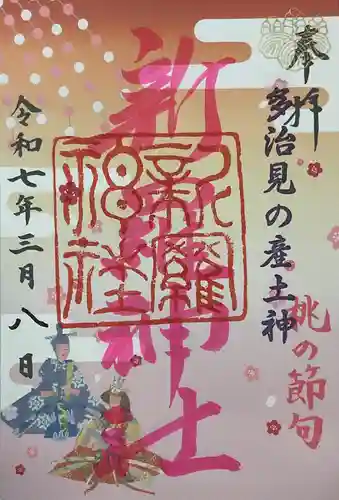 奉拝
多治見の産土神
桃の節句
新羅神社
新羅
神社
令和七年三月八日